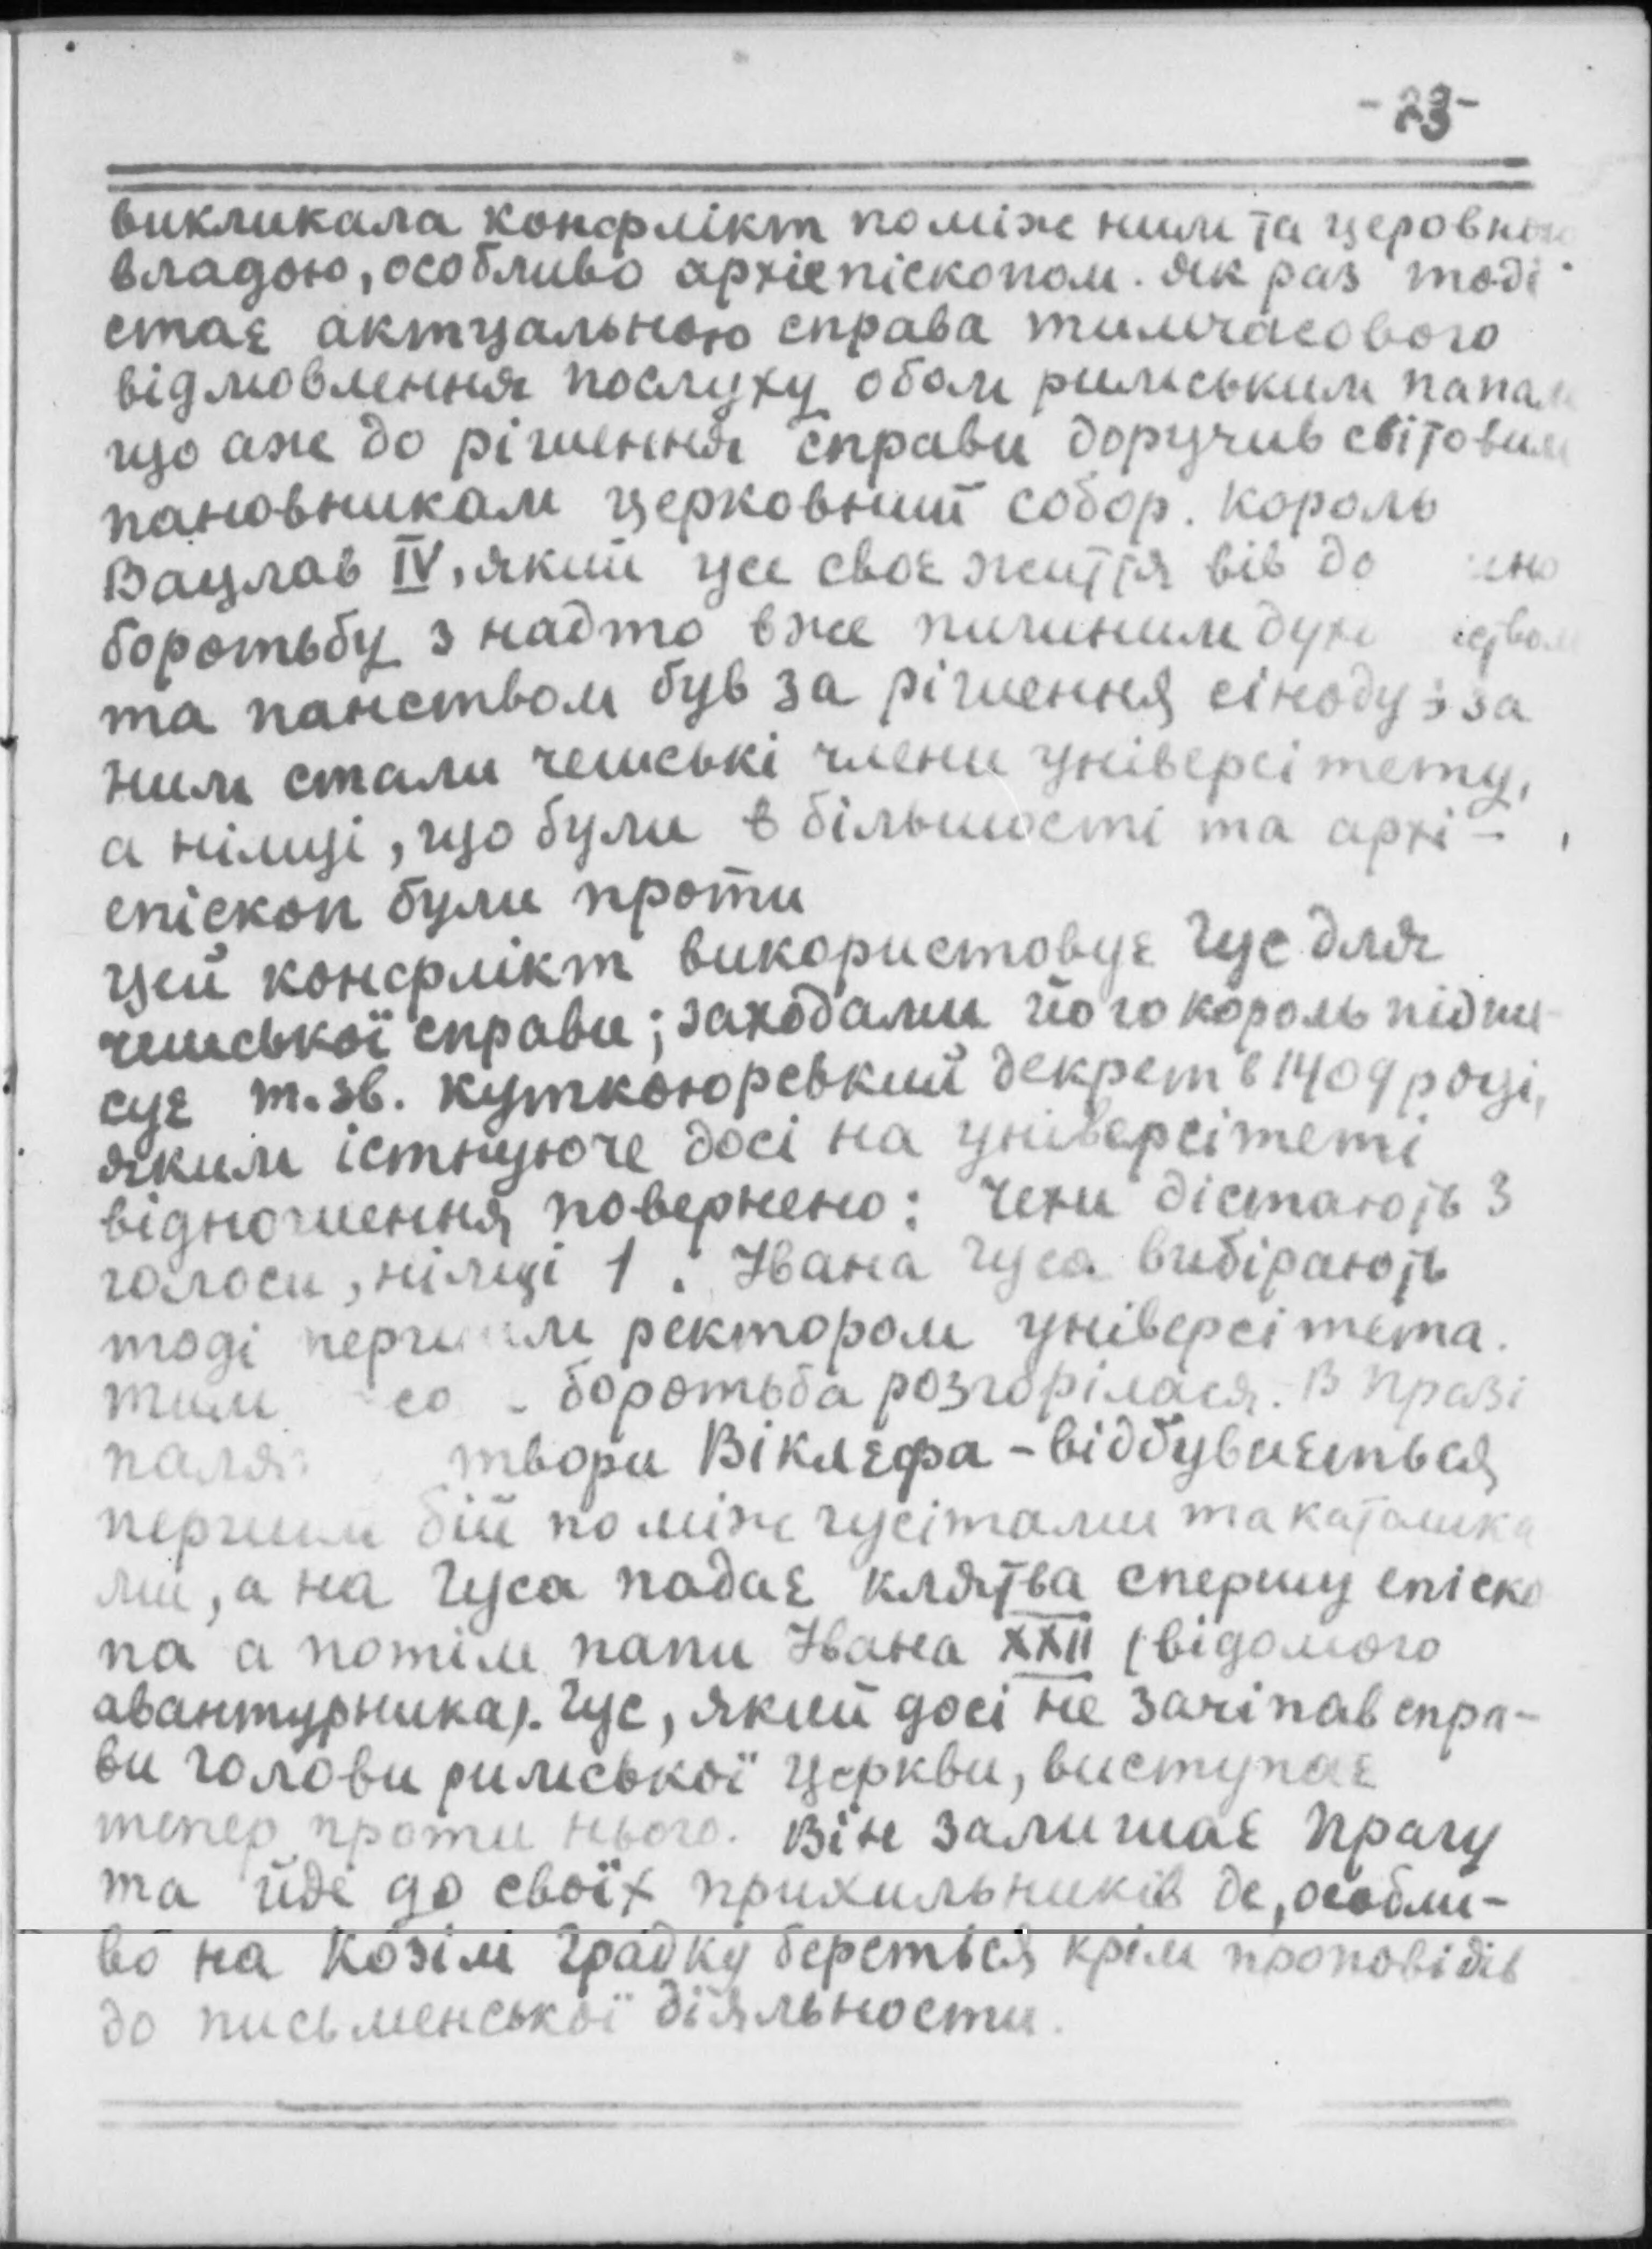 -23-
викликала конфлікт поміж ним та церовною
владою, особливо архієпіскопом. Як раз тоді
стає актуальною справа тимчасового
відмовлення послуху обом римським папам
що аж до рішення справи доручив світовим
пановникам церковний собор. Король
Вацлав IV, який усе своє життя вів
боротьбу з надто вже пишним
та панством був за рішення сіноду і за
ним стали чешські члени універсітету,
а німці, що були в більшости та архі-
епіскоп були проти
Цей конфлікт використовує Гус для
чешської справи; заходами його король підпи-
сує т.зв. Куткоюревкий декрет в 1409 році,
яким істнуюче досі на універсітеті
відношення повернено: Чехи дістають 3
голоси, німці 1. Івана Гуса вибірають
тоді першим ректором універсітета.
тим боротьба розгорілася. В Празі
твори Віклєфа - відбуваеться
перший бій поміж гусітами та католика
ми, а на Гуса падає клятва спершу епіско
па а потім папи Івана XXII (відомого
авантурника). Гус, який досі не зачіпав спра-
ви голови римської церкви, виступає
тепер проти нього. Він залишає Прагу
та йде до своїх прихильників де, особли-
во на Козім Градку береться крім проповідів
до письменської діяльности.